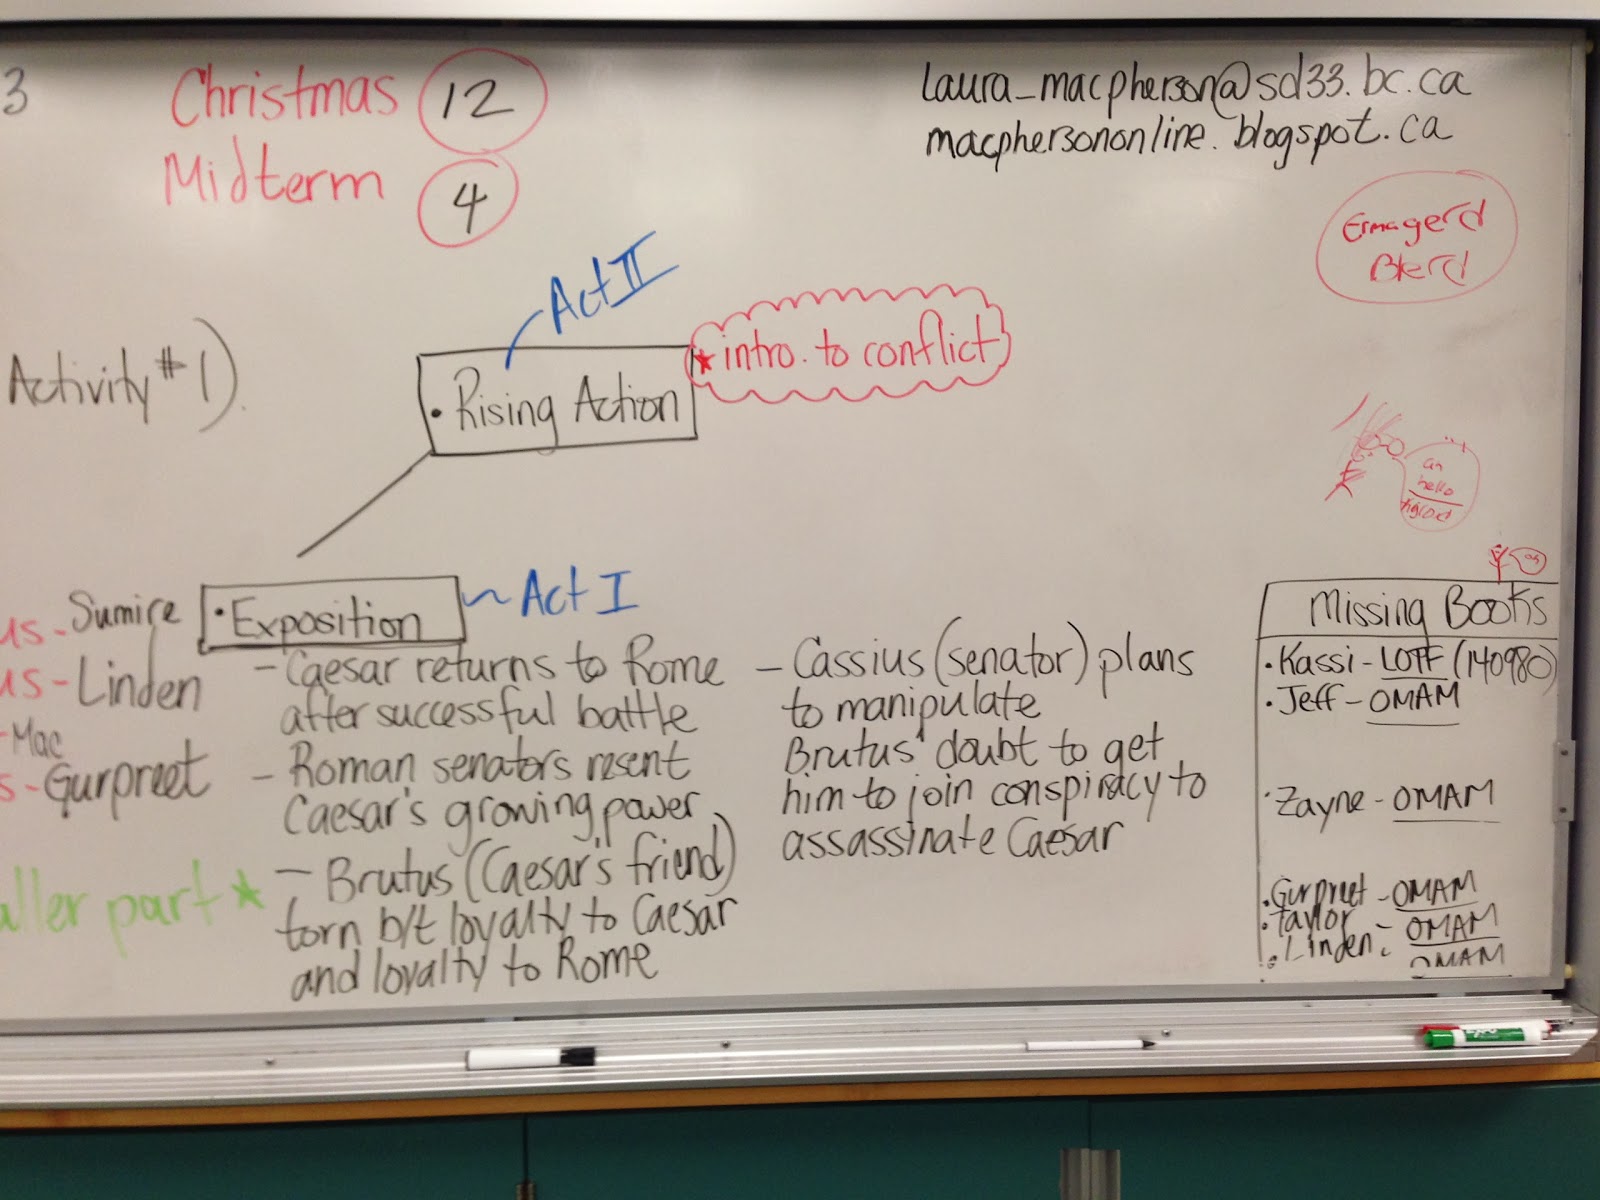 3
Christmas 12
Midterm 4
laura_macpherson@sd33.bc.ca
macphersononline.blogspot.ca
Ermagerd
Blerd
Act II
• Rising Action
★ intro. to conflict
Activity #1).
hello
us - Sumire
us - Linden
- Mac
s - Gurpreet
aller part ★
• Exposition
~ Act I
- Caesar returns to Rome
after successful battle
- Roman senators resent
Caesar's growing power
- Brutus (Caesar's friend)
torn b/t loyalty to Caesar
and loyalty to Rome
- Cassius (senator) plans
to manipulate
Brutus' doubt to get
him to join conspiracy to
assassinate Caesar
Missing Books
• Kassi - LOTF (140980)
• Jeff - OMAM
• Zayne - OMAM
• Gurpreet - OMAM
• Taylor - OMAM
• Linden - OMAM